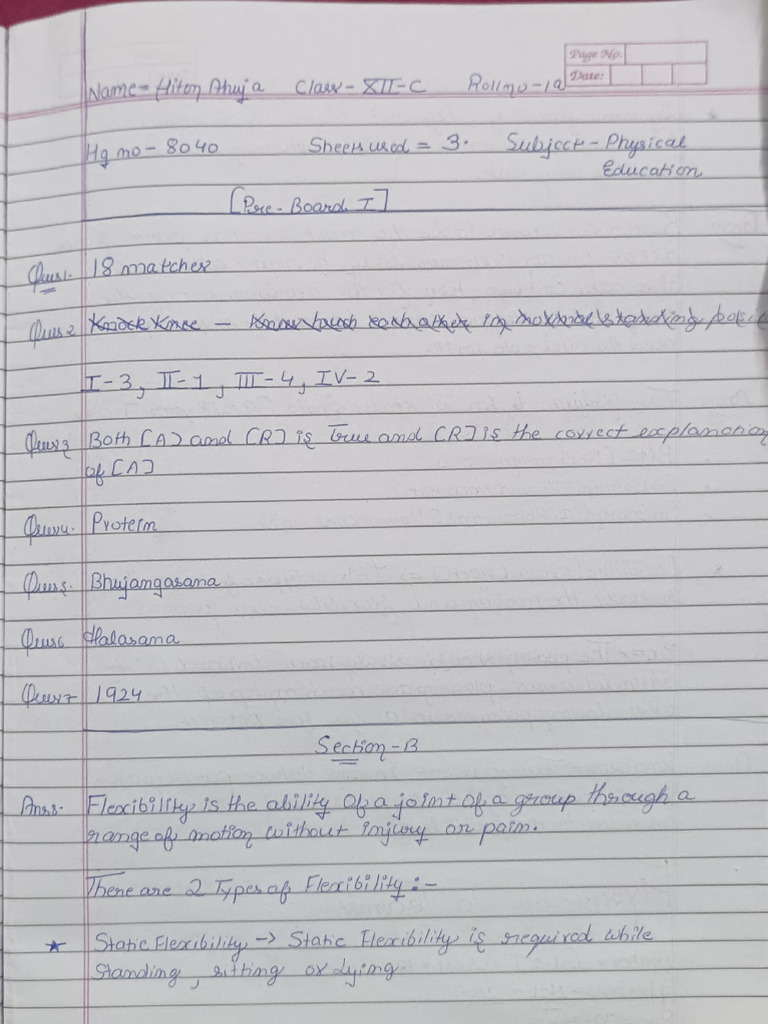 Page No.
Date:
Name - Hiten Ahuja Class - XII-C Roll no - 12
Hg no - 8040 Sheets used = 3. Subject - Physical
Education
[Pre-Board I]
Ques1. 18 matches
Ques2 Knock Knee - Knees touch each other in normal standing
I-3, II-1, III-4, IV-2
Ques3 Both [A] and [R] is true and [R] is the correct explanation
of [A]
Ques4. Protein
Ques5. Bhujangasana
Ques6 Halasana
Ques7 1924
Section-B
Ans8. Flexibility is the ability of a joint of a group through a
range of motion without injury or pain.
There are 2 Types of Flexibility :-
★ Static Flexibility → Static Flexibility is required while
standing, sitting or lying.